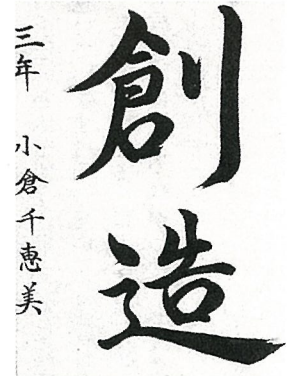 創造
三年 小倉千恵美